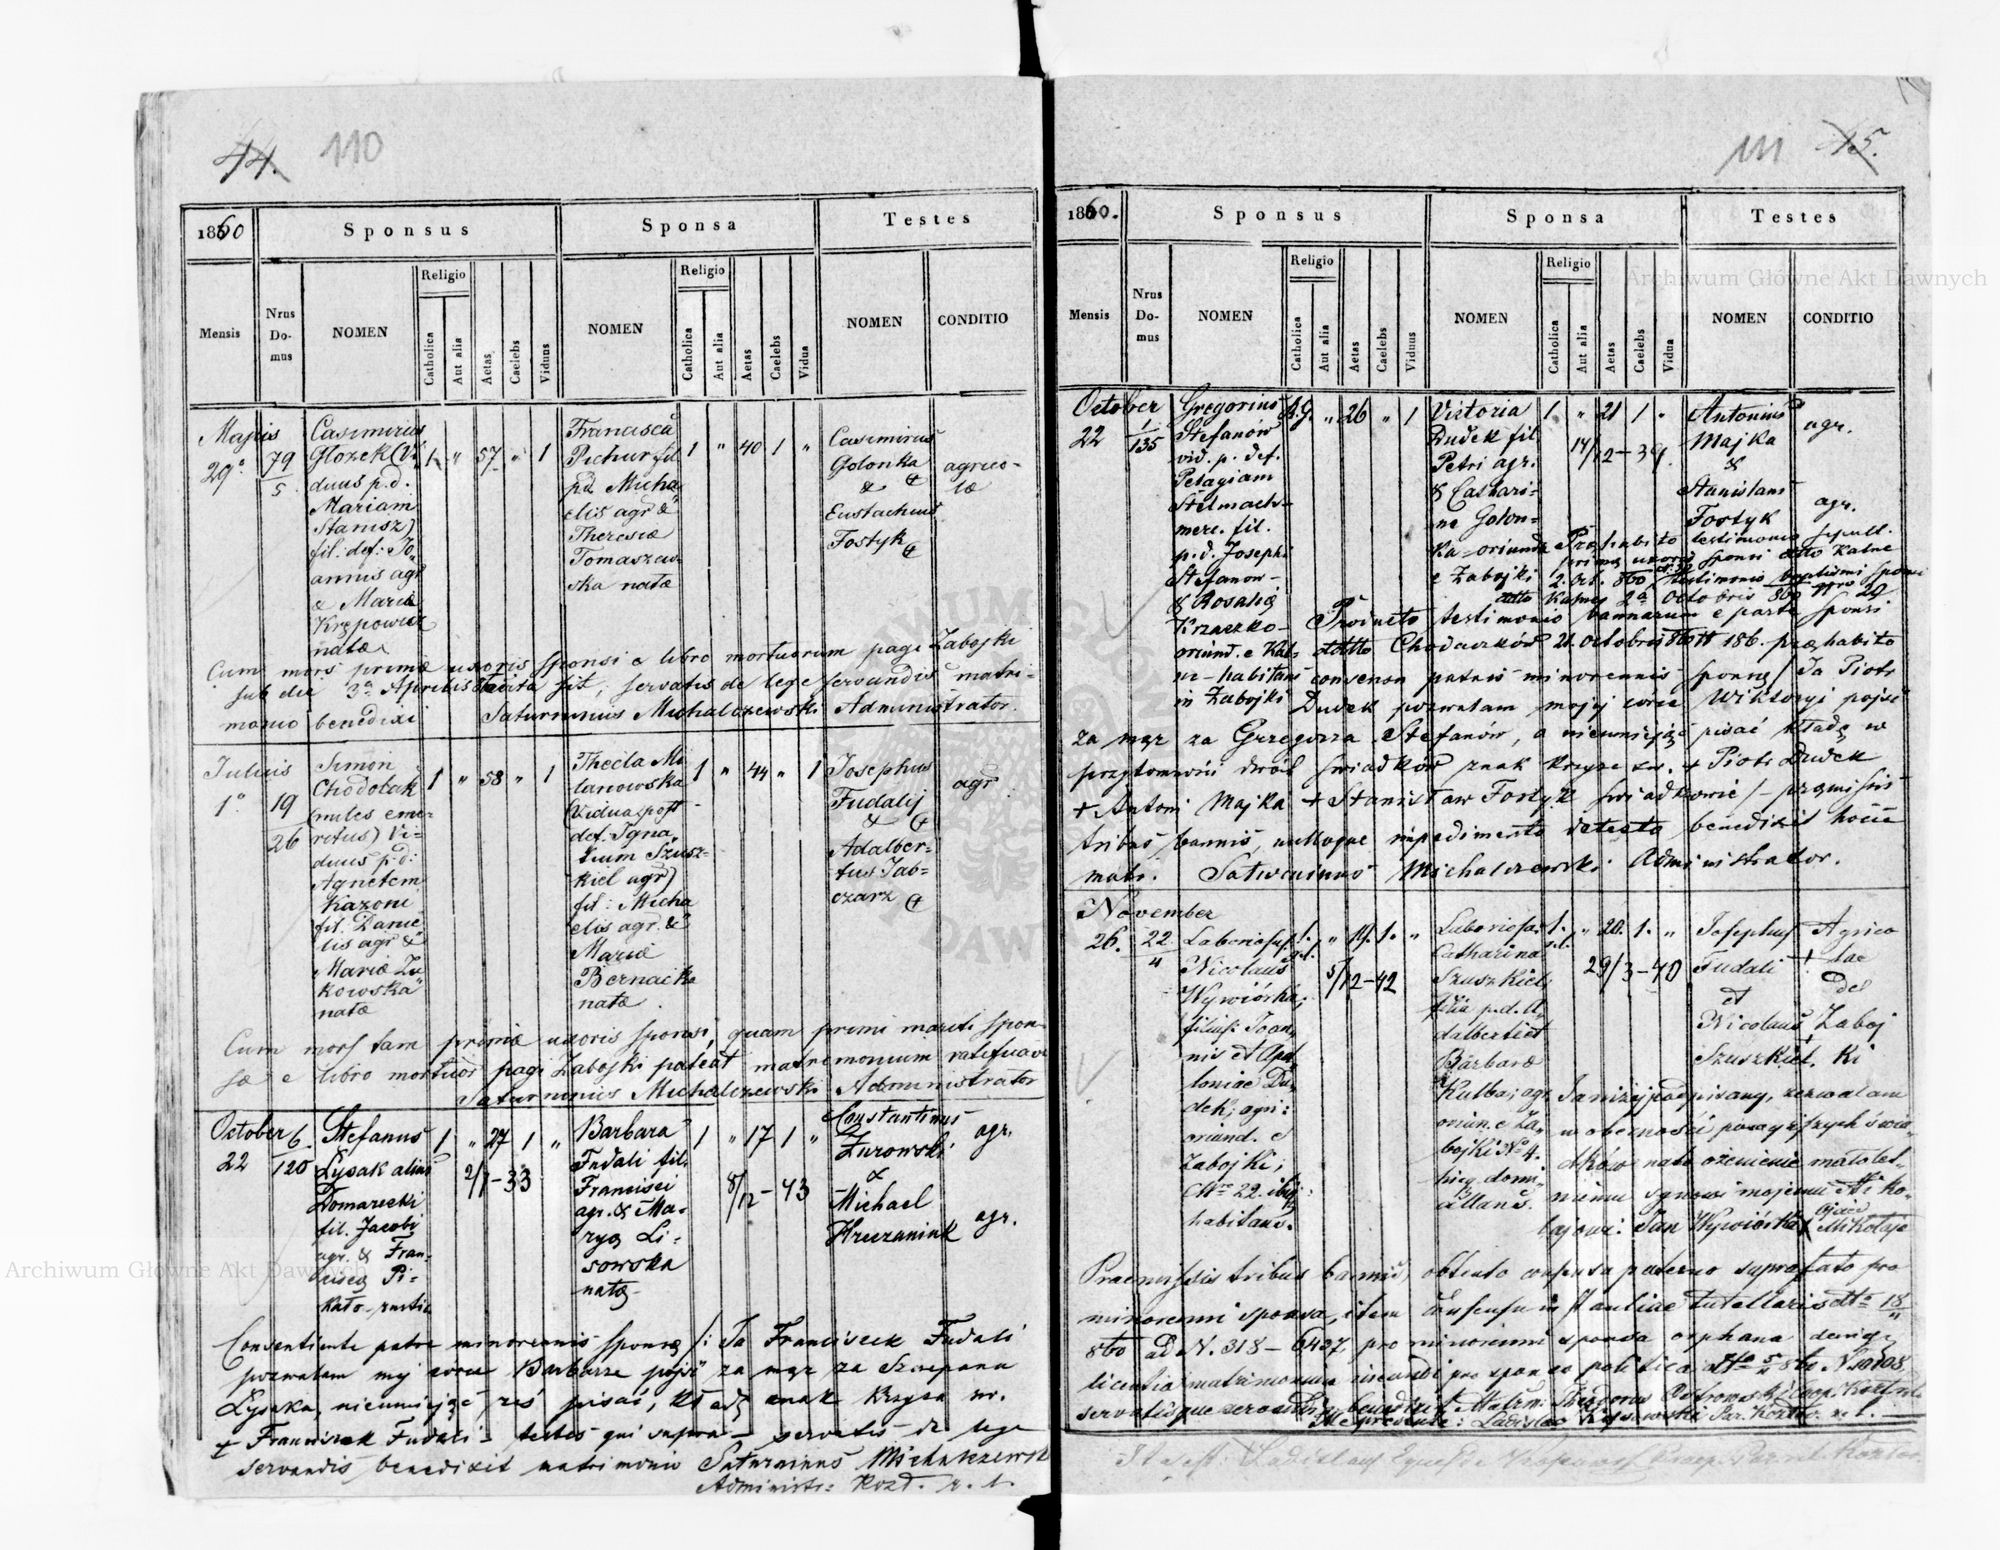 44. 110
1860
Sponsus
Sponsa
Testes
Mensis
Nrus Domus
NOMEN
Religio
Catholica
Aut alia
Aetas
Caelebs
Viduus
NOMEN
Religio
Catholica
Aut alia
Aetas
Caelebs
Vidua
NOMEN
CONDITIO
Majus
29ª
79
5
Casimirus
Głozek (Vi-
duus p.d.
Mariam
Stanisz)
fil: def: Jo
annis agr
& Mariæ
Krępowicz
natæ
1 " 57 " 1
Francisca
Pichur fil
p.d. Micha
elis agr &
Theresiæ
Tomaszew
ska natæ
1 " 40 1 "
Casimirus
Golonka
&
Eustachius
Fostyk
agrico-
læ
Cum mors primæ uxoris sponsi e libro mortuorum pagi Zabojki
sub die 3ª Aprilis sit, servatis de lege servandis matri-
monio benedixi Saturninus Michalczewski Administrator.
Julius
1ª
19
26
Simon
Chodolak
(miles eme-
retus) Vi-
duus p.d:
Agnetem
Kazoni
fil. Danie
lis agr &
Mariæ Zu
kowska
natæ
1 " 58 " 1
Thecla Mi
lanowska
Vidua post
def. Igna
tium Szusz-
kiel agr)
fil: Micha
elis agr. &
Mariæ
Bernacka
natæ
1 " 44 " 1
Josephus
Fudalij
&
Adalber-
tus Tab-
czarz
agr
Cum mors tam primæ uxoris sponsi, quam primi mariti spon-
sæ e libro mortuor pagi Zabojki pateat matrimonium
Saturninus Michalczewski Administrator
October
22
6.
120
Stefanus
Łysak alias
Domarecki
fil. Jacobi
agr. & Fran-
ciscę Pi-
kało-rustic
1 " 27 1 "
2/1-33
Barbara
Fudali fil.
Francisci
agr. & Ma-
ryę Li-
sowska
natę
1 " 17 1 "
8/12-43
Constantinus
Zurowski
&
Michael
Hreczaniuk
agr.
agr.
Consentiente patre minorennis sponsę /: Ja Franciszek Fudali
pozwalam mej córce Barbarze pójść za mąż za Szczepana
Łysaka, nieumiejąc zaś pisać, kładę znak krzyża św.
+ Franciszek Fudali - testes qui supra - servatis de lege
servandis benedixit matrimonio Saturninus Michalczewski
Administr: Kozł. r. l.
111 45.
1860.
Sponsus
Sponsa
Testes
Mensis
Nrus Domus
NOMEN
Religio
Catholica
Aut alia
Aetas
Caelebs
Viduus
NOMEN
Religio
Catholica
Aut alia
Aetas
Caelebs
Vidua
NOMEN
CONDITIO
October
22
1
135
Gregorius
Stefanow
vid. p. def.
Pelagiam
Stelmach-
merc. fil.
p.d. Josephi
Stefanow-
& Rosalię
Krzaczko-
oriund. e Kat-
ne-habitans
in Zabojki
R.G. " 26 " 1
Victoria
Dudek fil.
Petri agr.
& Cathari-
ne Golon-
ka-oriunda
e Zabojki
1 " 21 1 "
14/12-39.
Antonius
Majka
&
Stanislaus
Fostyk
agr.
agr.
Præhabito testimonio sepult.
primę uxoris sponsi Katne
2. Oct. 860 testimonio baptismi sponsi
Katney 2ª Octobris 860 N 29
Producto testimonio bannorum e parte sponsi
Chodaczków 21. Octobris 860 N 186. præhabito
consensu patris minorennis sponsę / Ja Piotr
Dudek pozwalam mojej córce Wiktoryi pójść
za mąż za Grzegorza Stefanów, a nieumiejąc pisać kładę w
przytomności dwóch świadków znak krzyża św. + Piotr Dudek
+ Antoni Majka + Stanisław Fostyk świadkowie /- præmissis
tribus bannis, nulloque impedimento detecto benedixit hocce
matr. Saturninus Michalczewski Administrator.
November
26.
22
4
Laboriosus
Nicolaus
Wywiórka,
filius: Joan-
nis et Apol
loniae Du-
dek, agri:
oriund. e
Zabojki;
Nro 22. ibiq:
habitans.
1. " 19. 1. "
5/12-42
Laboriosa
Catharina
Szuszkiel,
filia p.d. A-
dalberti et
Barbarae
Kulba; agr.
oriun. e Za-
bojki No 4.
hicq. domi-
cilians.
1. " 20. 1. "
29/3-40
Josephus
Fudali +
et
Nicolaus
Szuszkiel.
Agrico
lae
de
Zaboj
ki
Ja niżej podpisany, zezwalam
w obecności powyższych świa-
dków na to ożenienie małolet-
niemu synowi mojemu Miko-
łajowi: Jan Wywiórka ojciec Mikołaja
Praemissis tribus bannis, obtento consensu paterno suprafato pro
minorenni sponso, item Consensu in tutellaris dtto 18/11
860 ad N. 318 - 6427 pro minorenni sponsa orphana deniq.
licentia matrimonium ineundi pro sponso politica dtto 5/11 860. N. 10108
servatisque servandis, benedixit Matrim: Ostrowski Coop. Kozł.
Me præsente: Ladislao Par. Kozłov. r. l.
Ita est: Ladislaus
Archiwum Główne Akt Dawnych
Archiwum Główne Akt Dawnych